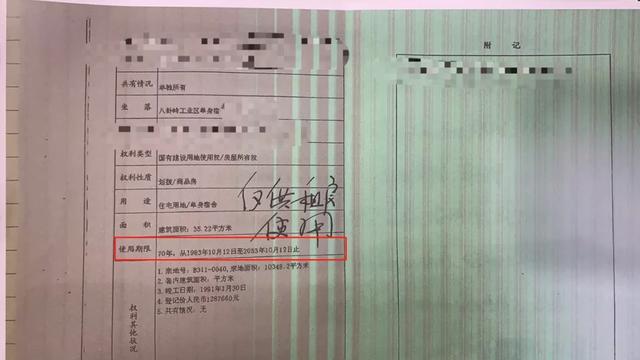 附 记
共有情况 单独所有
坐 落 八卦岭工业区单身宿
权利类型 国有建设用地使用权/房屋所有权
权利性质 划拨/商品房
用 途 住宅用地/单身宿舍
面 积 建筑面积：35.22平方米
仅供租房
使用
使用期限 70年，从1983年10月12日至2053年10月12日止
权利其他状况
1. 宗地号：B311-0040，宗地面积：10348.2平方米
2. 套内建筑面积：平方米
3. 竣工日期：1991年1月30日
4. 登记价人民币1287660元
5. 共有情况：无